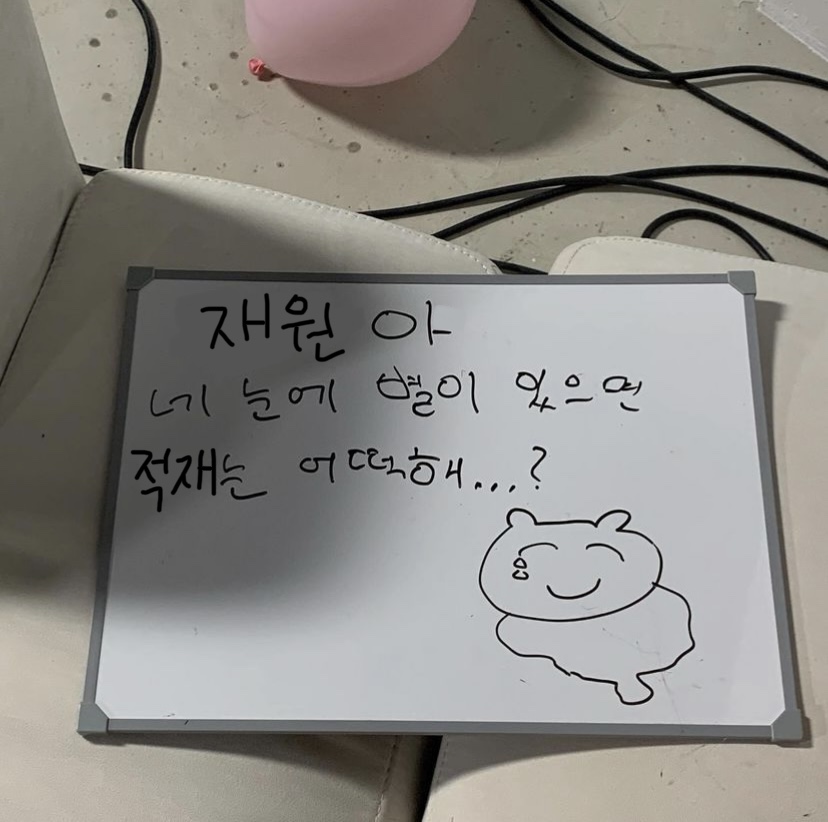 재원아
네 눈에 별이 있으면
적재는 어떡해...?